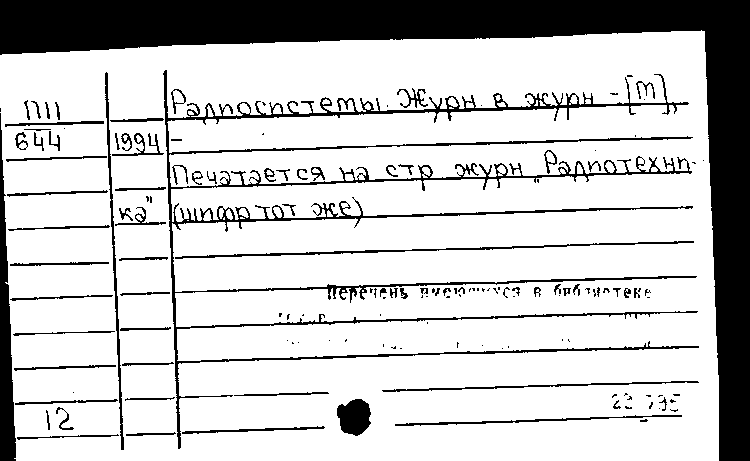 П11 Радиосистемы. Журн в журн - [М],
644 1994 -
Печатается на стр журн „Радиотехни-
ка" (шифр тот же)
Перечень имеющихся в библиотеке
12